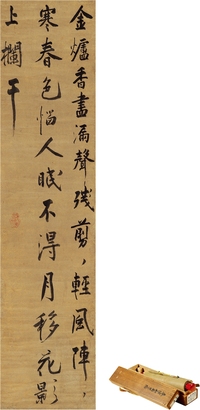 金爐香盡漏聲殘剪〻輕風陣〻
寒春色惱人眠不得月移花影
上欄干